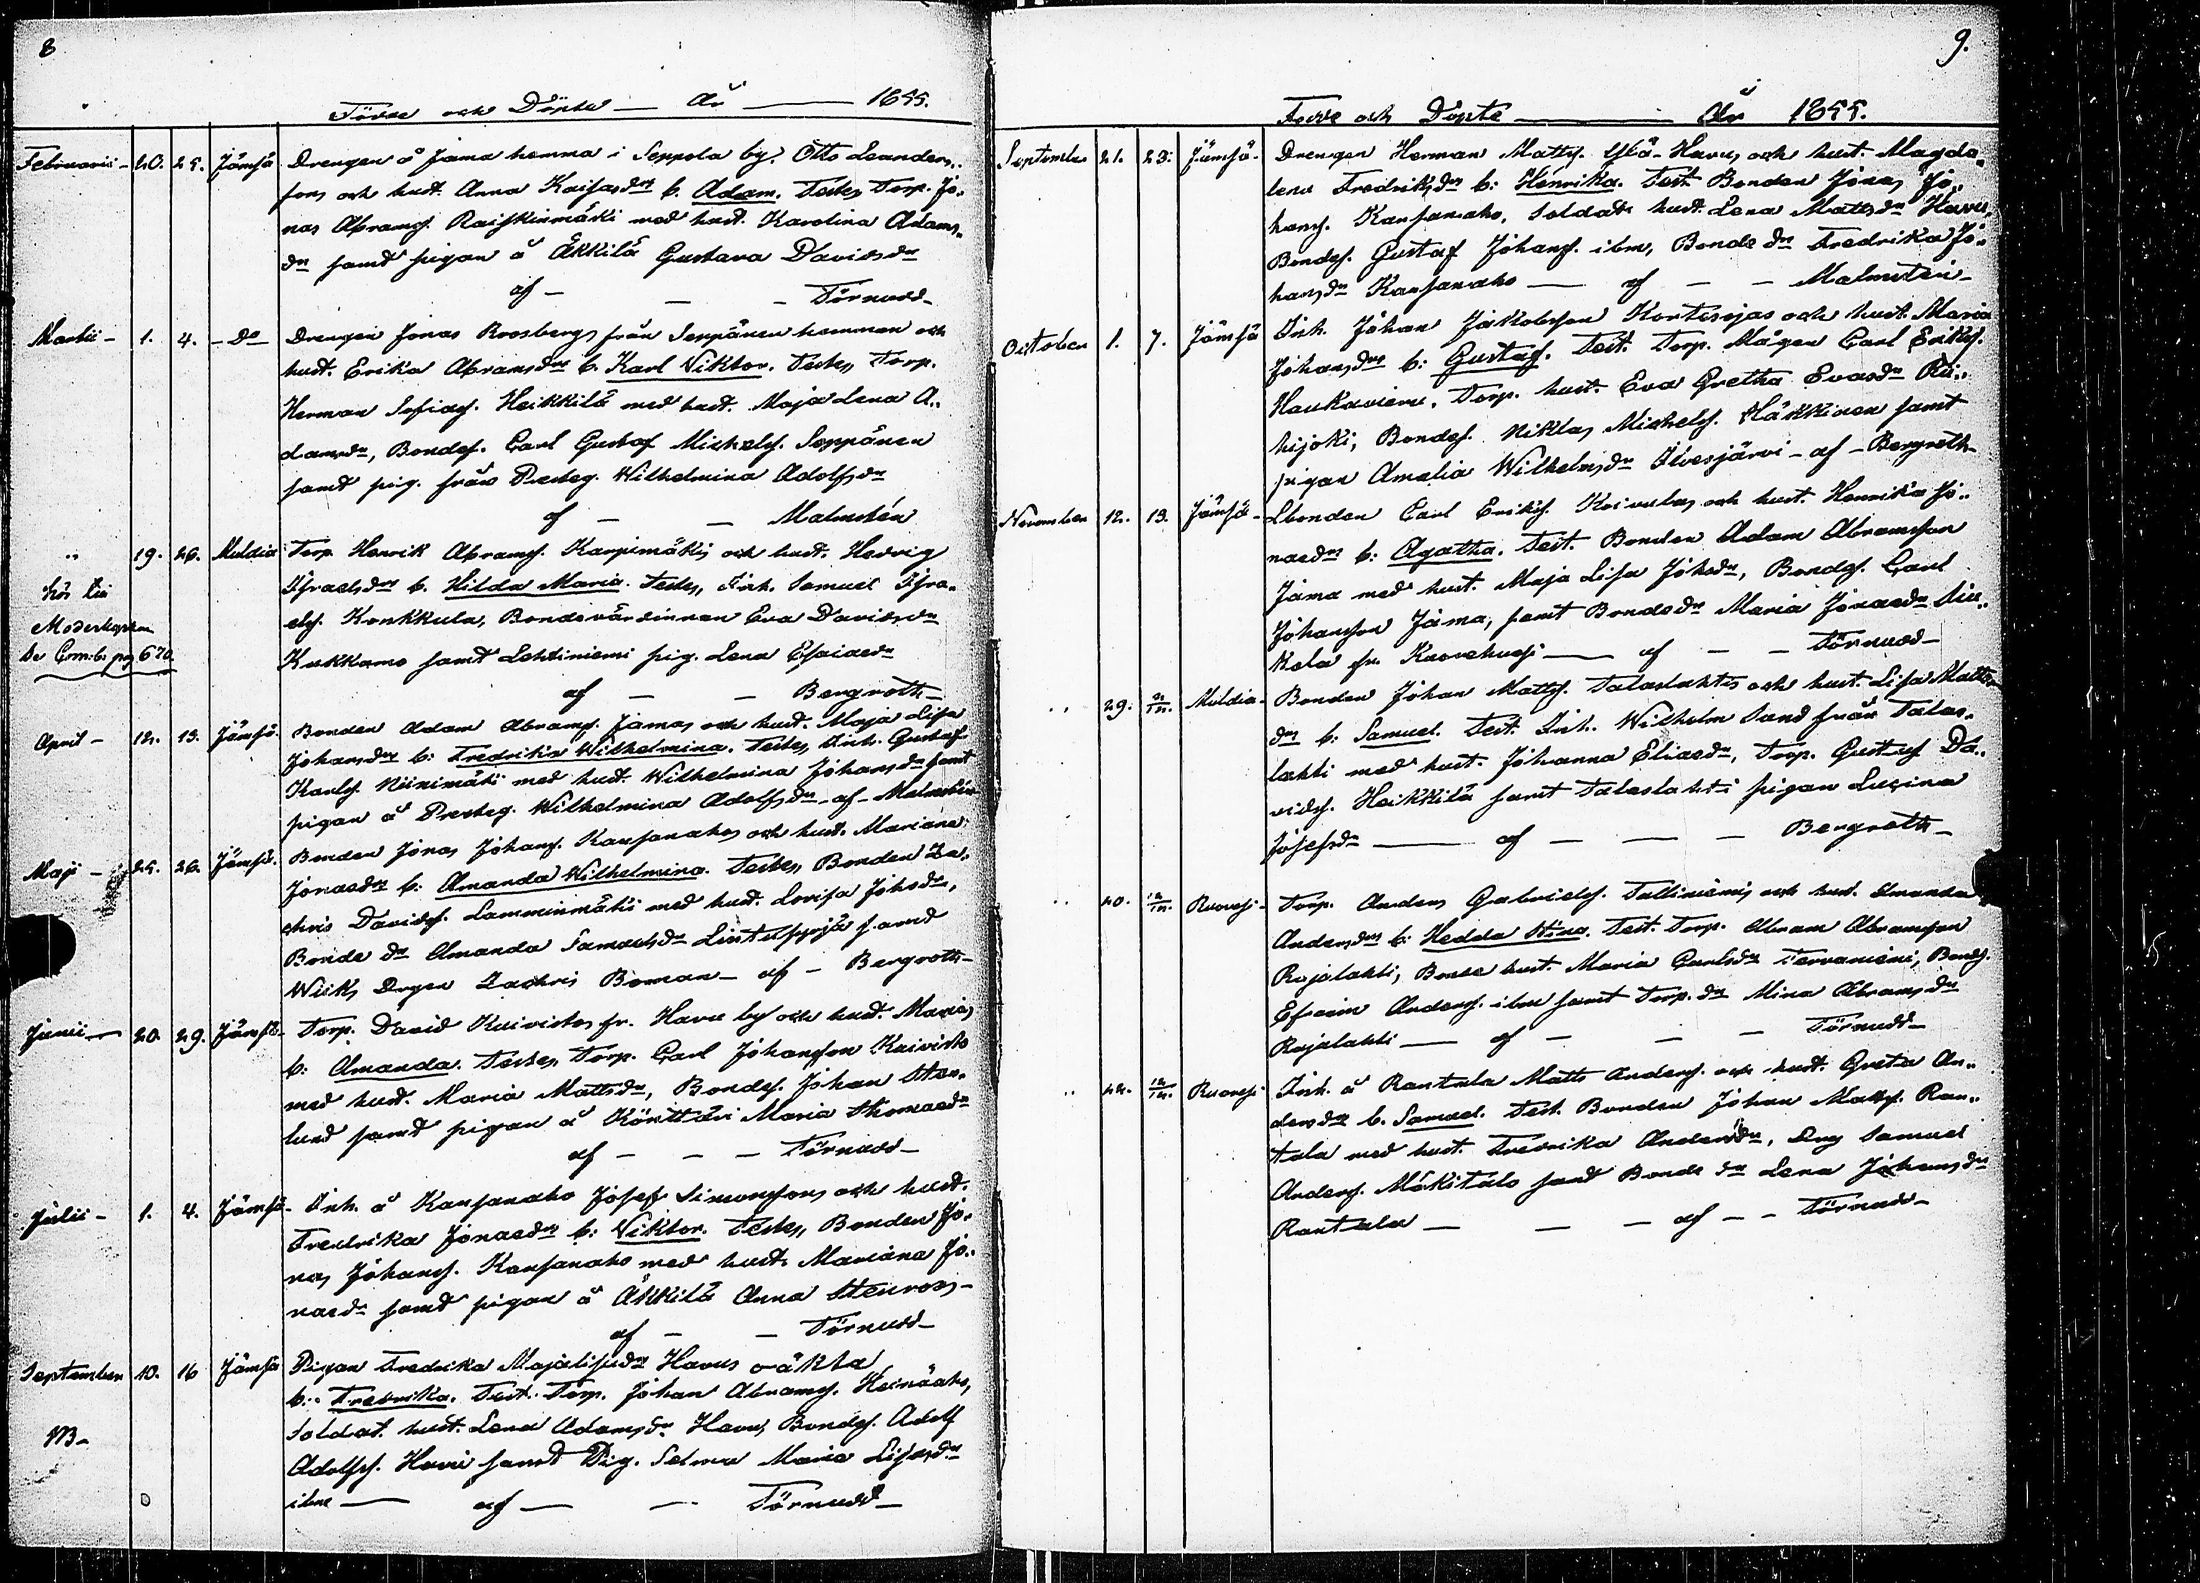 8
Födde och Döpte — År — 1855.
Februarii - 20. 25. Jämsä Drengen å Jama hemma i Seppola by Otto Leanders-
sons och hust. Anna Kaisasdrs b. Adam. Testes Torp. Jo-
nas Abramss. Raiskinmäki med hust. Karolina Adams-
dr samt pigan å Äkkilä Gustava Davidsdr
af — — - Törnudd -
Martii - 1. 4. - Do Drengen Jonas Roosbergs från Seppänen hemman och
hust. Erika Abramsdrs b. Karl Viktor. Testes Torp.
Herman Sofias. Heikkilä med hust. Maja Lena A-
damsdr, Bondes. Carl Gustaf Michelss. Seppänen
samt pig. från Presteg. Wilhelmina Adolfsdr
af — — Malmstén
" 19. 26. Muldia Torp. Henrik Abramss. Karpimäkis och hust. Hedvig
hör till Israelsdrs b. Hilda Maria. Testes, Inh. Samuel Isra-
Moderkyrkan elss. Konkkula, Bondevärdinnan Eva Davidsdr
Se Com.b. pag 670 Kukkamo samt Lehtiniemi pig. Lena Esaiasdr
af — — Bergroth -
April - 12. 13. Jämsä. Bonden Adam Abramss. Jamas och hust. Maja Lisa
Johansdrs b: Fredrika Wilhelmina. Testes Inh. Gustaf
Karlss. Niinimäki med hust. Wilhelmina Johansdr samt
pigan å Presteg. Wilhelmina Adolfsdr - af - Malmstén
Maji - 25. 26. Jämsä. Bonden Jonas Johanss. Kansanahos och hust. Mariana
Jonasdrs b: Amanda Wilhelmina. Testes, Bonden Za-
chris Davidss. Lamminmäki med hust. Lovisa Johsdr,
Bonde dr Amanda Samuelsdr Lintusyrjä samt
Wiiks Drgen Zachris Boman - af - Bergroth -
Junii - 20. 29. Jämsä - Torp. David Kuivistos fr. Havu by och hust. Marias
b: Amanda. Testes Torp. Carl Johansson Kuivisto
med hust. Maria Mattsdr, Bondes. Johan Sten-
lund samt pigan å Könttäri Maria Thomasdr
af — — — Törnudd -
Julii - 1. 4. Jämsä - Inh. å Kansanaho Josef Simonssons och hust.
Fredrika Jonasdrs b: Viktor. Testes, Bonden Jo-
nas Johanss. Kansanaho med hust. Mariana Jo-
nasdr samt pigan å Äkkilä Anna Stenroos -
af — — Törnudd -
September 10. 16 Jämsä Pigan Fredrika Majalisasdr Havus oäkta
b: Fredrika. Test. Torp. Johan Abramss. Heinäaho,
Soldat. hust. Lena Adamsdr Havu, Bondes. Adolf
NB - Adolfss. Havu samt Pig. Selma Maria Lisasdr
ibm — af — — Törnudd -
9.
Födde och Döpte — År 1855.
September 21. 23. Jämsä - Drengen Herman Mattss. Ylä-Havus och hust. Magda-
lena Fredriksdrs b: Henrika. Test. Bonden Jonas Jo-
hanss. Kansanaho, Soldats hust. Lena Mattsdr Havu,
Bondes. Gustaf Johanss. ibm, Bonde dr Fredrika Jo-
hansdr Kansanaho — af — — Malmstén -
October 1. 7. Jämsä Inh. Johan Jakobsson Kortesojas och hust. Maria
Johansdrs b: Gustaf. Test. Torp. Mågen Carl Erikss.
Haukavieru, Torp. hust. Eva Gretha Evasdr
hijoki, Bondes. Niklas Michelss. Häkkinen samt
pigan Amalia Wilhelmsdr Ilvesjärvi - af - Bergroth -
November 12. 13. Jämsä - Lbonden Carl Erikss. Koivulas och hust. Henrika Jo-
nasdrs b: Agatha. Test. Bonden Adam Abramsson
Jama med hust. Maja Lisa Johsdr, Bondes. Carl
Johansson Jama, samt Bondedr Maria Jonasdr
kola fr. Kuorehvesi — af — — Törnudd -
" 29. 2/12. Muldia - Bonden Johan Mattss. Talaslahtis och hust. Lisa Matts-
drs b: Samuel. Test. Inh. Wilhelm Sand från Talas-
lahti med hust. Johanna Eliasdr, Torp. Gustaf Da-
vidss. Heikkilä samt Talaslahti pigan Lusina
Josefsdr — af — — — Bergroth -
" 20. 12/12. Ruovesi - Torp. Anders Gabrielss. Tulliniemis och hust. Amanda
Andersdrs b: Hedda Stina. Test. Torp. Abram Abramsson
Rajalahti, Bonde hust. Maria Carlsdr Tervaniemi, Bondes.
Efraim Anderss. ibm samt Torp.dr Mina Abramsdr
Rajalahti — af — — — Törnudd -
" 22. 12/12. Ruovesi Inh. å Rantala Matts Anderss. och hust. Greta An-
dersdrs b. Samuel. Test. Bonden Johan Mattss. Ran-
tala med hust. Fredrika Andersdr, Drng Samuel
Anderss. Mäkitalo samt Bonde dr Lena Johansdr
Rantala — — — af — — Törnudd -